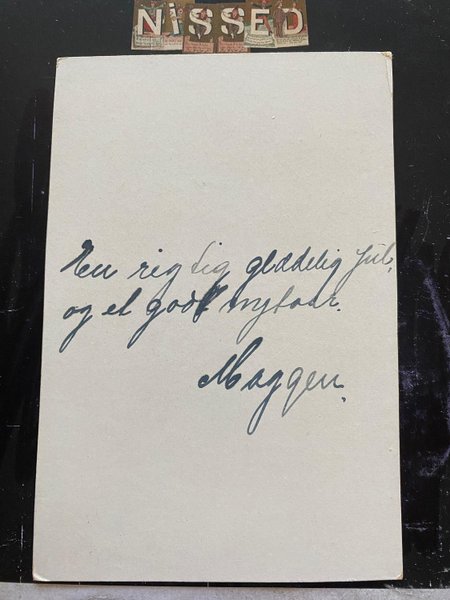 NISSED
En rigtig glædelig Jul,
og et godt nytaar.
Maggen.